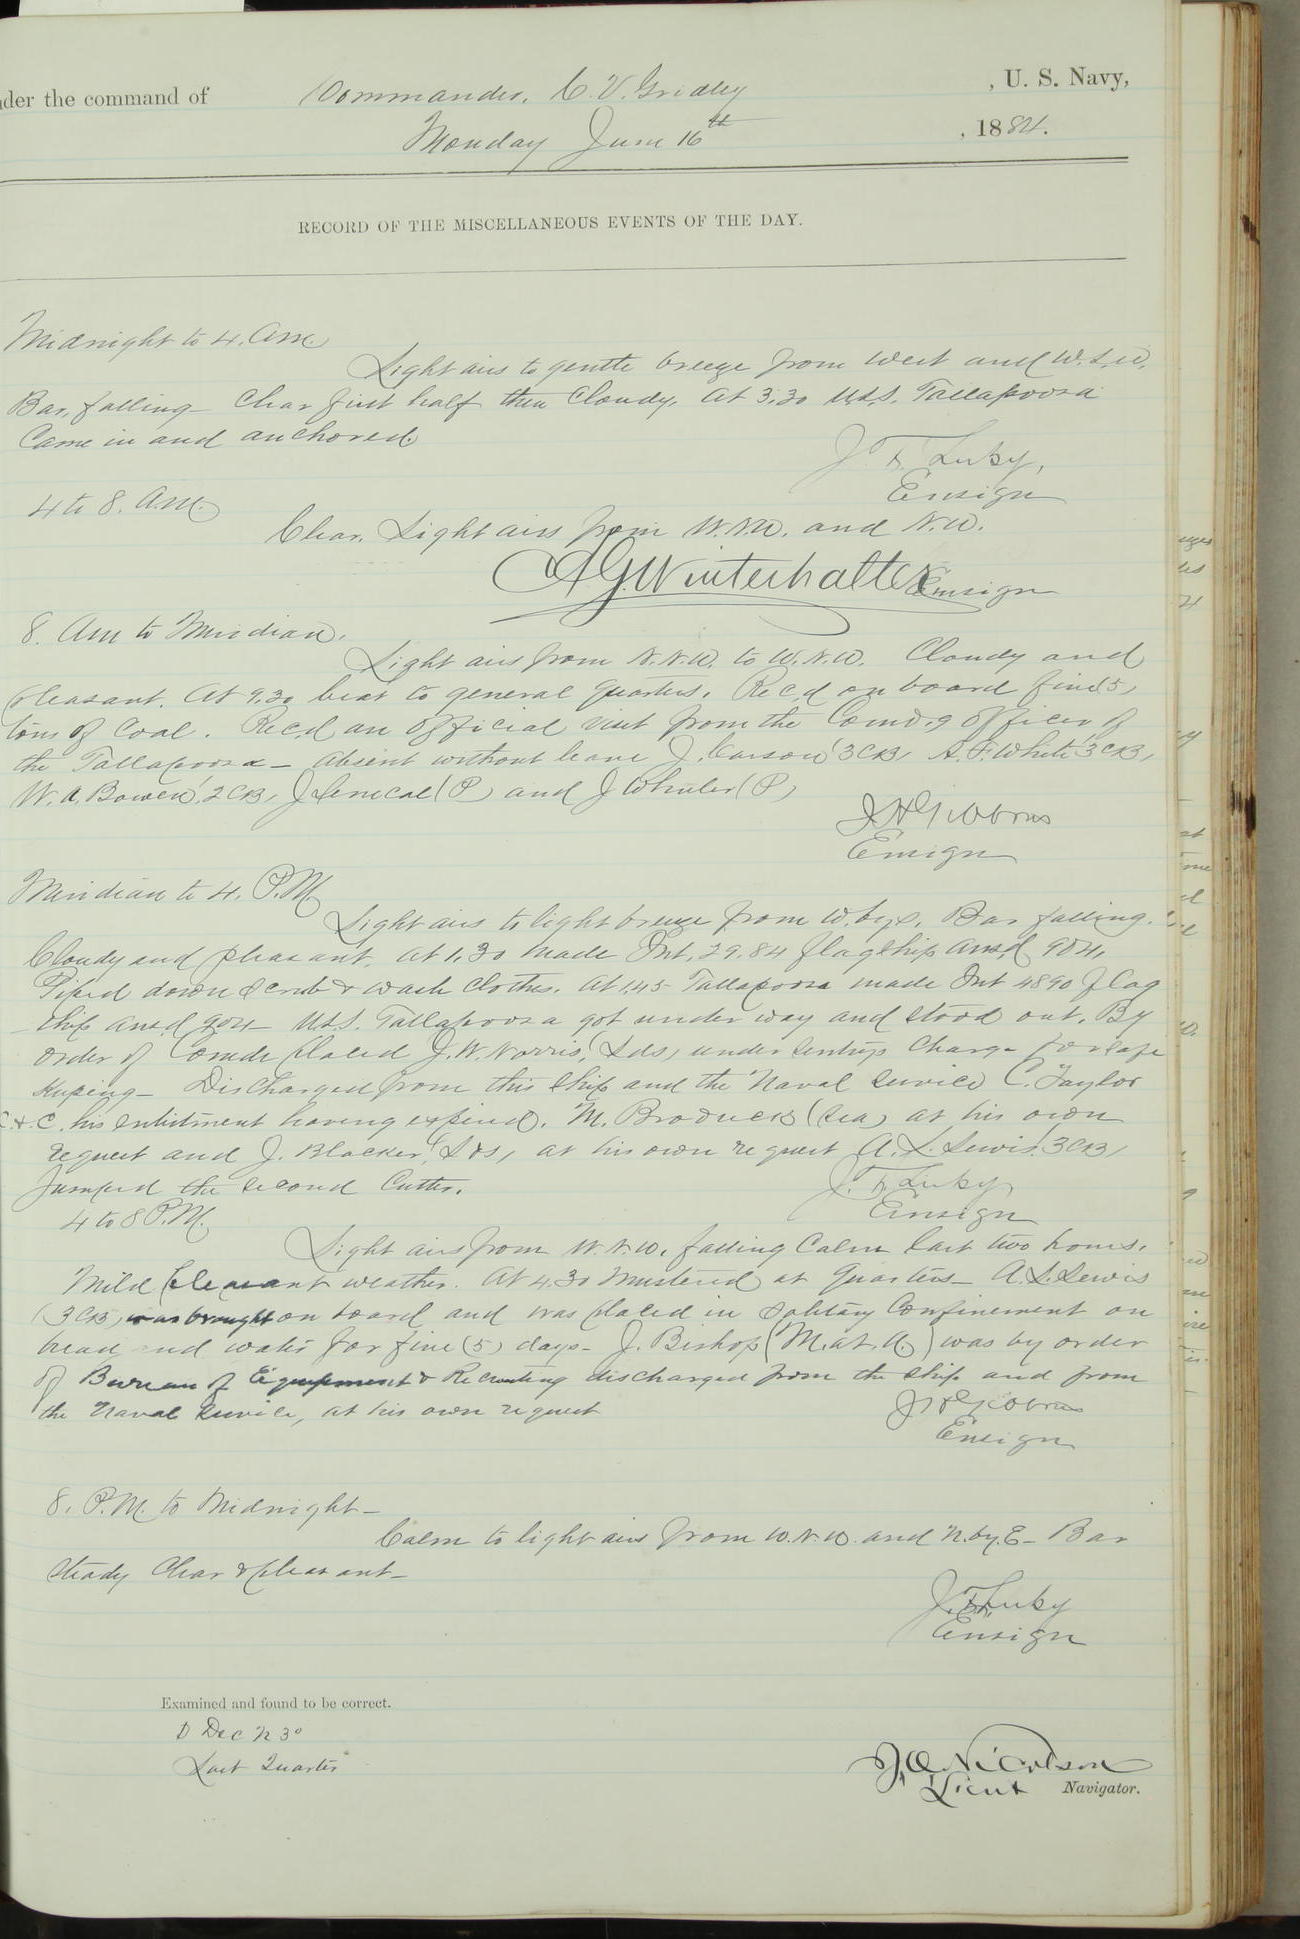 under the command of Commander, C. V. Gridley , U. S. Navy,
Monday June 16th , 1884.
RECORD OF THE MISCELLANEOUS EVENTS OF THE DAY.
Midnight to 4. Am.
Light airs to gentle breeze from West and W.S.W.
Bar, falling Clear first half then Cloudy. At 3.30 U.S.S. Tallapoosa
Came in and anchored.
J. F. Luby,
Ensign
4 to 8. A.M.
Clear. Light airs from W.N.W. and N.W.
A G Winterhalter Ensign
8. Am to Meridian.
Light airs from N.N.W. to W.N.W. Cloudy and
pleasant. At 9.30 beat to general quarters. Rec'd on board five (5)
tons of Coal. Rec'd an official visit from the Comd'g officer of
the Tallapoosa — Absent without leave J. Carson (3CB), A. F. White (3CB),
W. A. Bowen (2CB), J Senecal (P) and J Wheeler (P)
J H Gibbons
Ensign
Meridian to 4. P.M.
Light airs to light breeze from W. by S. Bar falling.
Cloudy and pleasant. At 1.30 made Int. 29.84 flagship ansd 904.
Piped down scrub & wash clothes. At 1.45 Tallapoosa made Int 4890 flag
ship ansd 904 — U.S.S. Tallapoosa got under way and stood out. By
order of Comdr placed J. W. Norris, (Lds) under sentrys charge for safe
keeping — Discharged from this ship and the Naval service C. Taylor
S.S.C. his enlistment having expired. M. Broderick (Sea) at his own
request and J. Blocker (Lds) at his own request A. L. Lewis (3CB)
Jumped the second Cutter.
J. F. Luby,
Ensign
4 to 8 P.M.
Light airs from W.N.W. falling Calm last two hours.
Mild pleasant weather. At 4.30 mustered at quarters — A. L. Lewis
(3CB) was brought on board and was placed in solitary confinement on
bread and water for five (5) days — J. Bishop (M. at. A.) was by order
of Bureau of Equipment & Recruiting discharged from the ship and from
the Naval service, at his own request
J H Gibbons
Ensign
8. P.M. to Midnight —
Calm to light airs from W.N.W. and N. by E — Bar
steady Clear & pleasant —
J. F. Luby
Ensign
Examined and found to be correct.
D Dec N 3°
Last Quarter
J. O. Nicholson
Lieut Navigator.